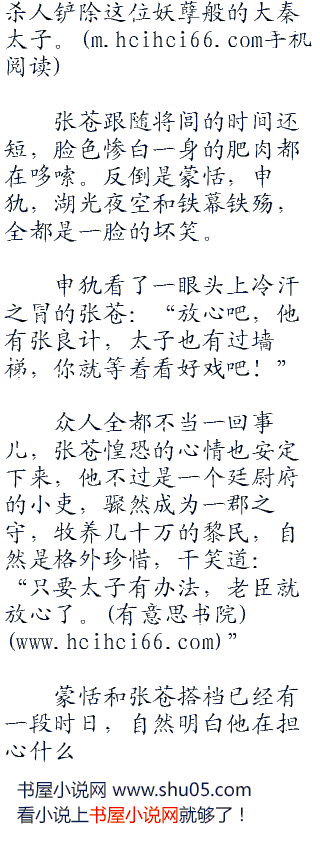 杀人铲除这位妖孽般的大秦
太子。(m.hcihci66.com手机
阅读)
张苍跟随将闾的时间还
短，脸色惨白一身的肥肉都
在哆嗦。反倒是蒙恬，申
犰，湖光夜空和铁幕铁殇，
全都是一脸的坏笑。
申犰看了一眼头上冷汗
之冒的张苍：“放心吧，他
有张良计，太子也有过墙
梯，你就等着看好戏吧！”
众人全都不当一回事
儿，张苍惶恐的心情也安定
下来，他不过是一个廷尉府
的小吏，骤然成为一郡之
守，牧养几十万的黎民，自
然是格外珍惜，干笑道：
“只要太子有办法，老臣就
放心了。(有意思书院)
(www.hcihci66.com)”
蒙恬和张苍搭裆已经有
一段时日，自然明白他在担
心什么
书屋小说网 www.shu05.com
看小说上书屋小说网就够了！